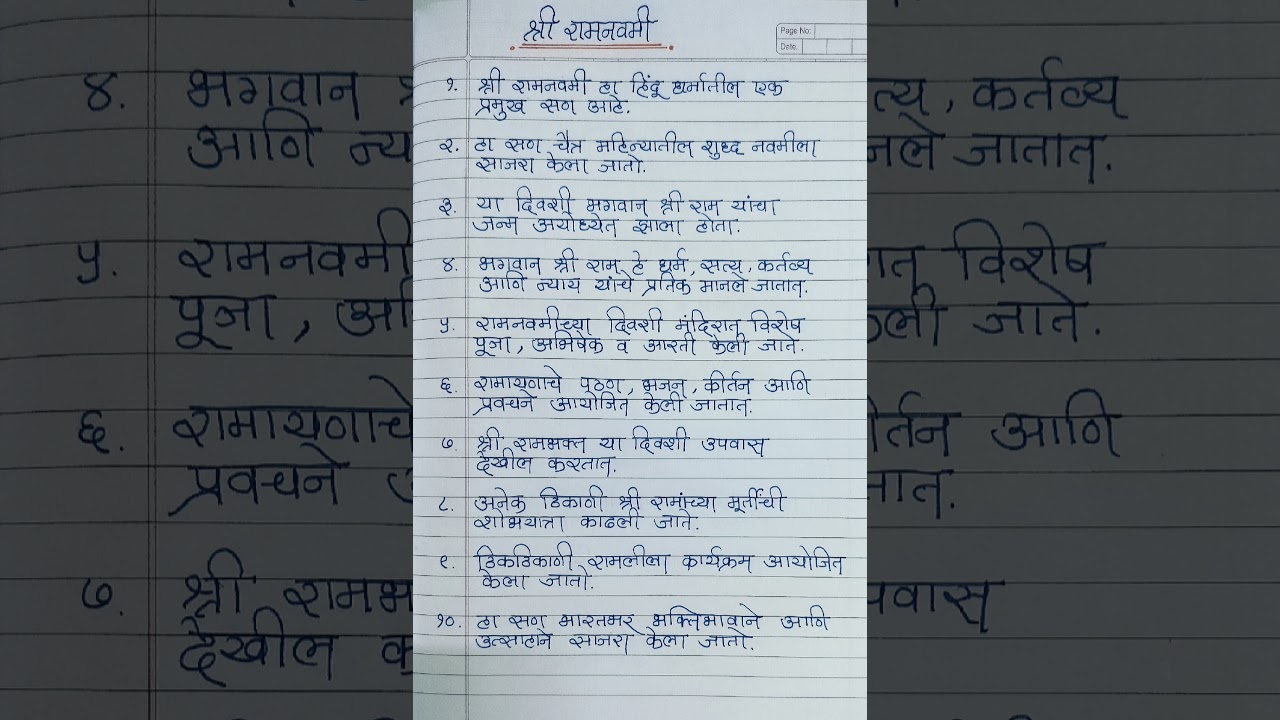 श्री रामनवमी
Page No:
Date:
१. श्री रामनवमी हा हिंदू धर्मातील एक
प्रमुख सण आहे.
२. हा सण चैत्र महिन्यातील शुध्द नवमीला
साजरा केला जातो.
३. या दिवशी भगवान श्री राम यांचा
जन्म अयोध्येत झाला होता.
४. भगवान श्री राम हे धर्म, सत्य, कर्तव्य
आणि न्याय यांचे प्रतिक मानले जातात.
५. रामनवमीच्या दिवशी मंदिरात विशेष
पूजा, अभिषेक व आरती केली जाते.
६. रामायणाचे पठण, भजन, कीर्तन आणि
प्रवचने आयोजित केली जातात.
७. श्री रामभक्त या दिवशी उपवास
देखील करतात.
८. अनेक ठिकाणी श्री रामांच्या मूर्तीची
शोभयात्रा काढली जाते.
९. ठिकठिकाणी रामलीला कार्यक्रम आयोजित
केला जातो.
१०. हा सण भारतभर भक्तिभावाने आणि
उत्साहाने साजरा केला जातो.